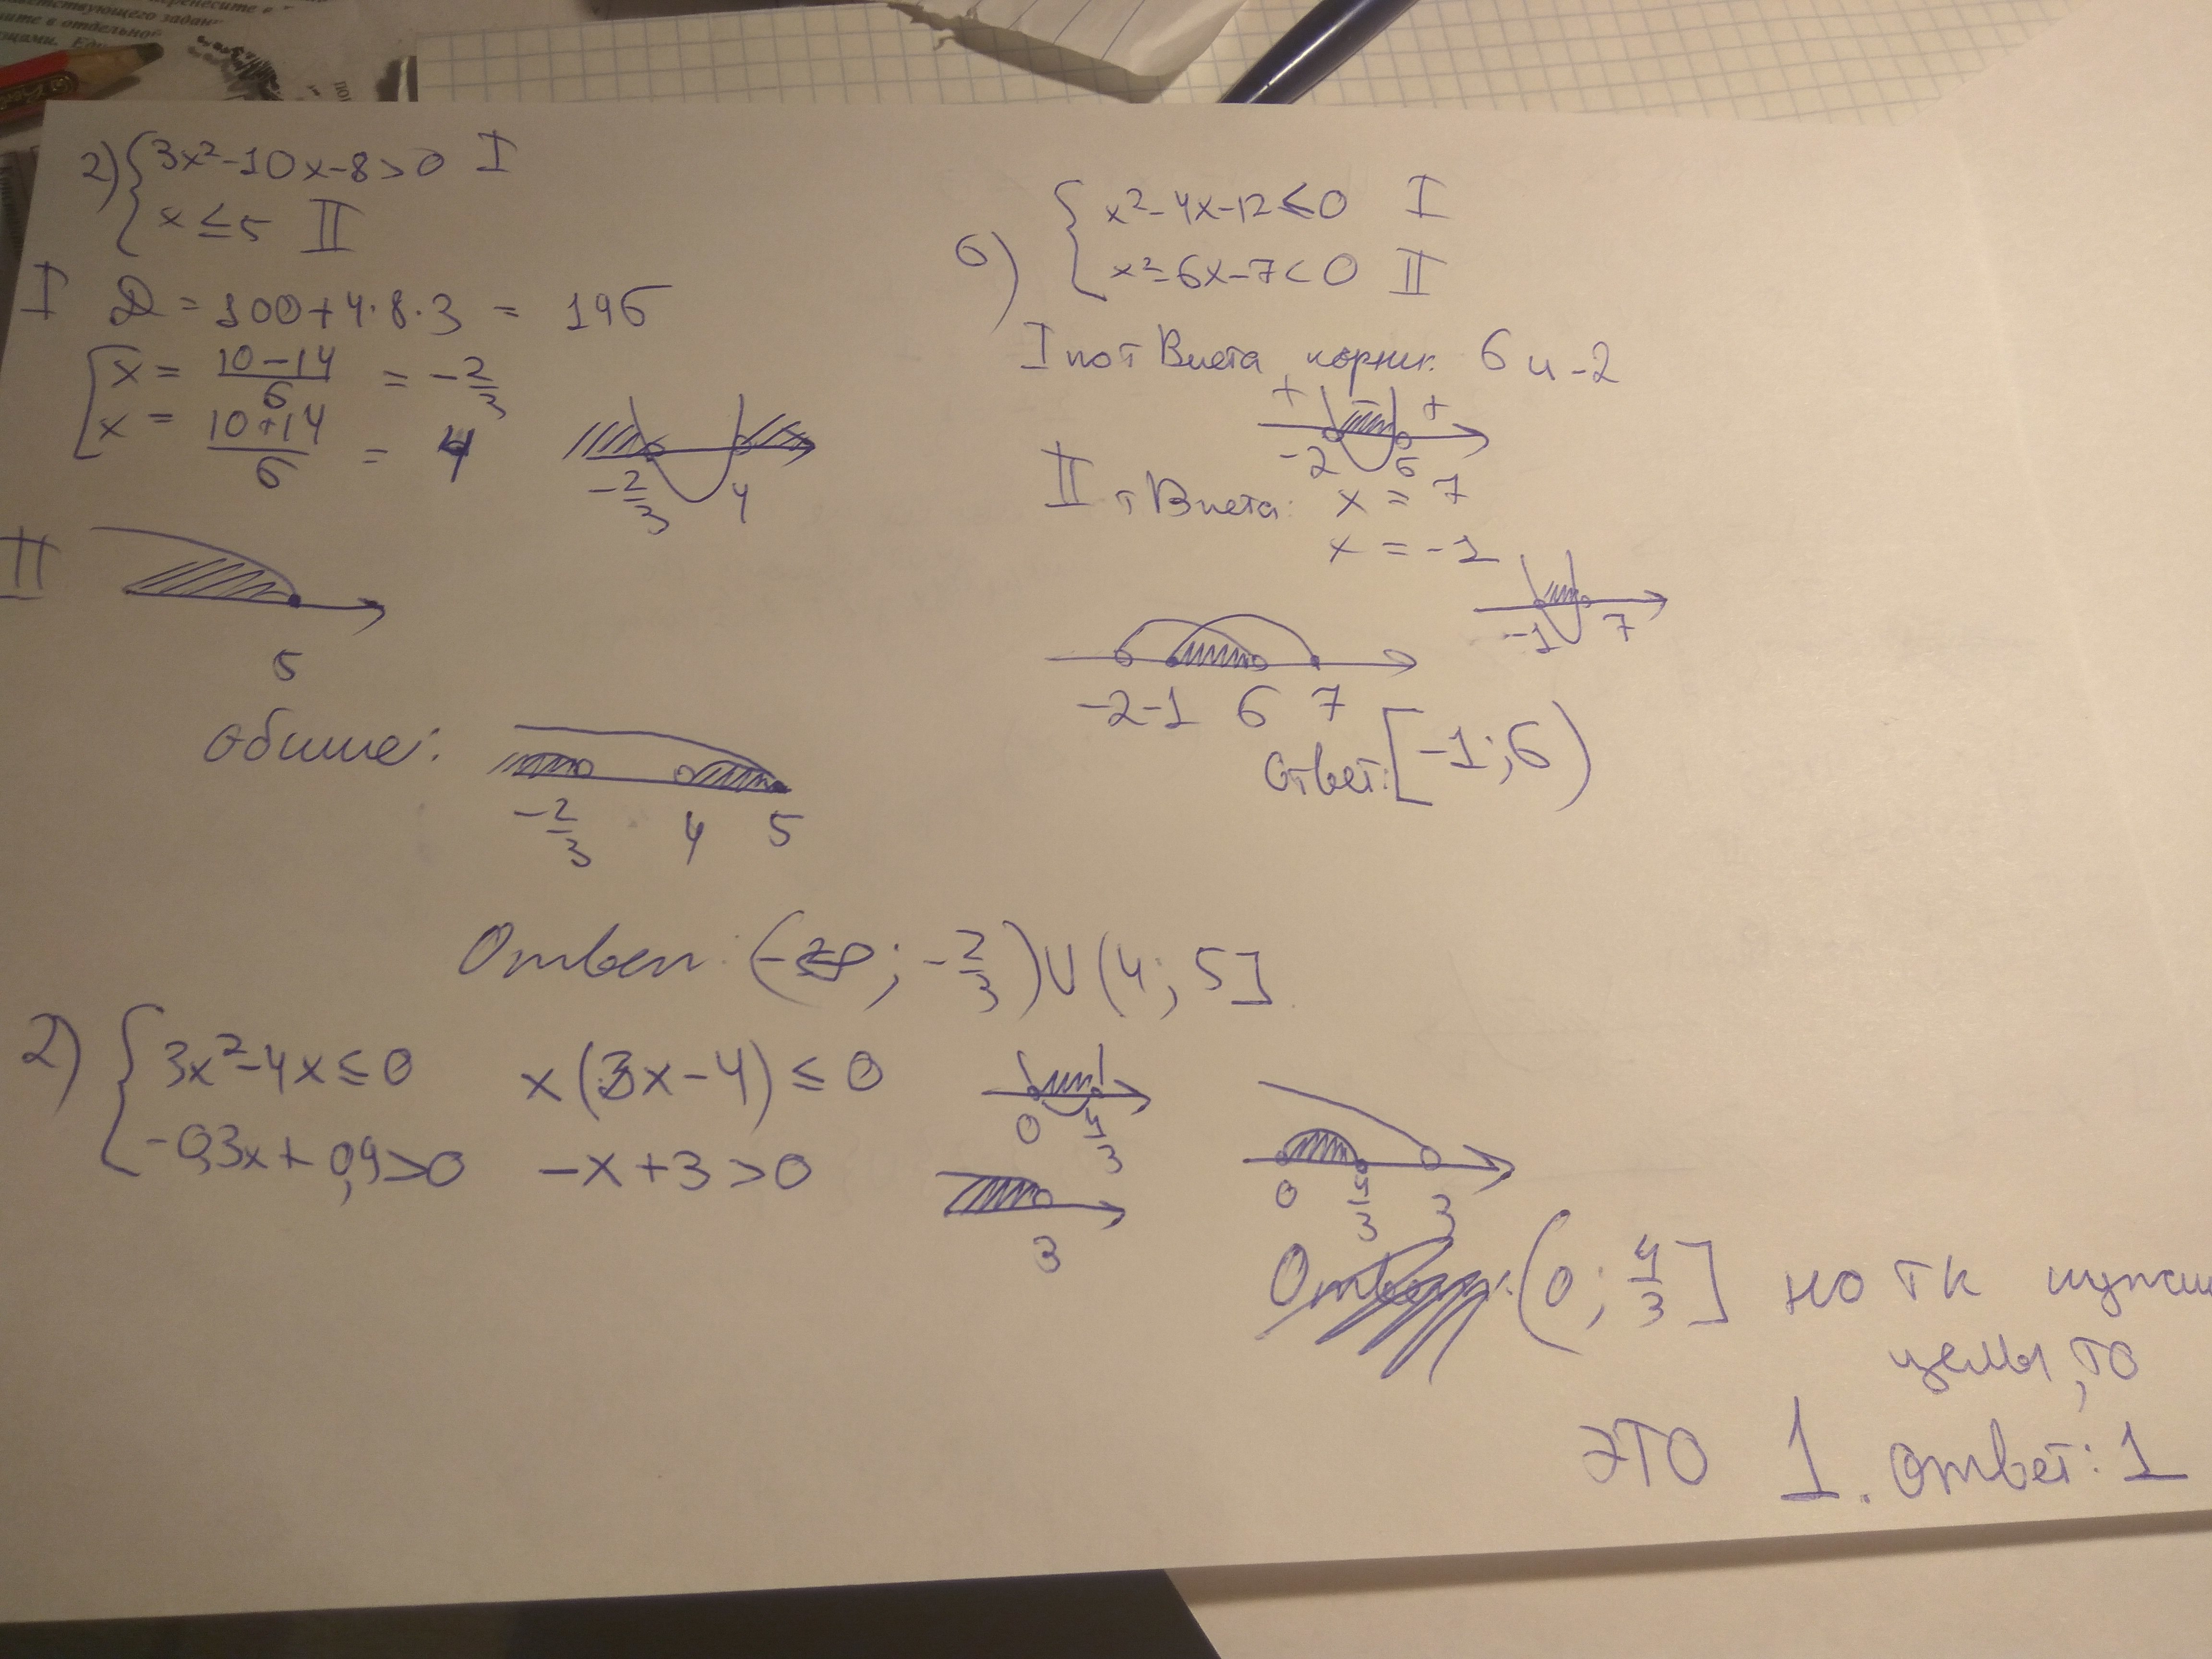 еренесите в
тветствующего задан
ите в отдельно
2) { 3x²-10x-8>0 I
x ≤ 5 II
I D = 100+4·8·3 = 196
[ x = (10-14)/6 = -2/3
x = (10+14)/6 = 4
-2/3 4
II
5
общие:
-2/3 4 5
Ответ: (-∞; -2/3)∪(4; 5]
6) { x²-4x-12≤0 I
x²-6x-7<0 II
I по т Виета корни: 6 и -2
+ - +
-2 6
II т Виета: x = 7
x = -1
-1 7
-2 -1 6 7
ответ: [-1; 6)
2) { 3x²-4x≤0 x(3x-4)≤0
0 4/3
-0,3x+0,9>0 -x+3>0
3
0 4/3 3
(0; 4/3] но тк нужны
целы, то
это 1. ответ: 1